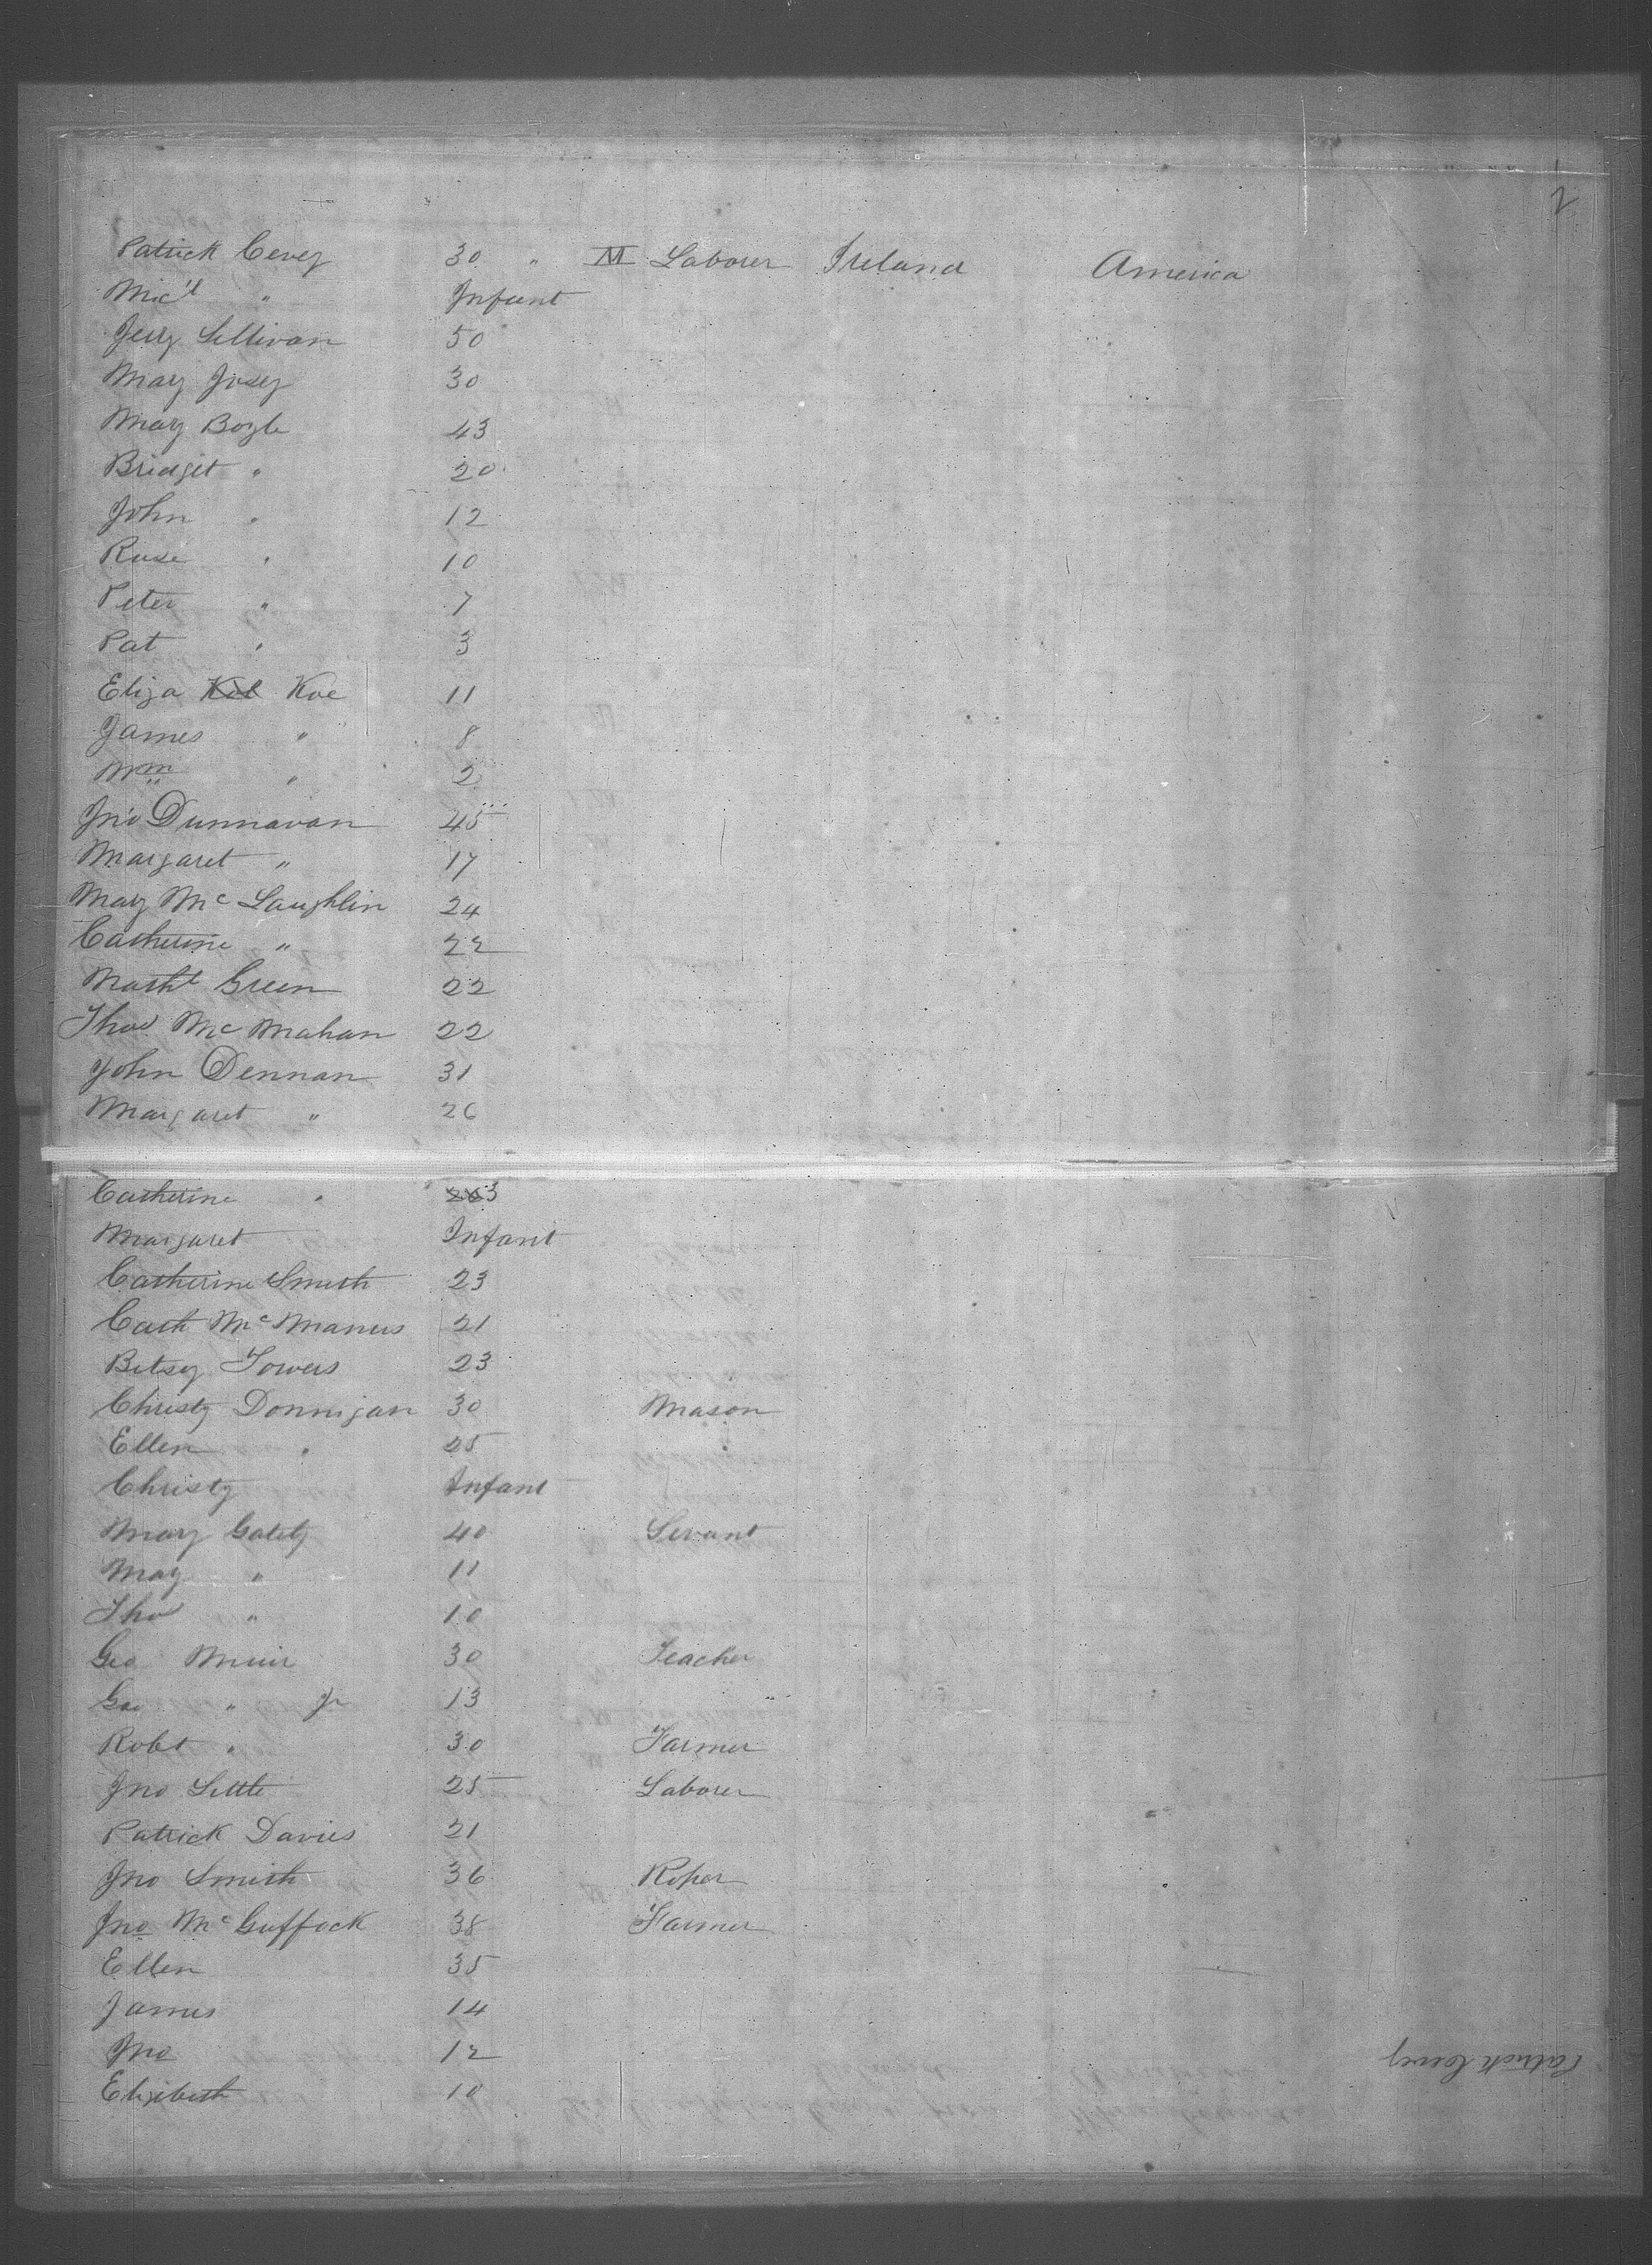 2
Patrick Cevey 30 " M Laborer Ireland America
Mic'l " Infant
Jerry Sullivan 50
Mary Josey 30
Mary Boyle 43
Bridget " 20
John " 12
Rose " 10
Peter " 7
Pat " 3
Eliza Koe 11
James " 8
Wm " 2
Jno Dunnavan 45
Margaret " 17
Mary McLaughlin 24
Catherine " 22
Green 22
Thos McMahan 22
John Dennan 31
Margaret " 26
Catherine " 3
Margaret Infant
Catherine Smith 23
Cath McManus 21
Betsey Towers 23
Christy Donnigan 30 Mason
Ellen " 25
Christy Infant
Mary Gately 40 Servant
May " 11
Thos " 10
Geo Muir 30 Teacher
Geo " Jr 13
Robt " 30 Farmer
Jno Little 25 Laborer
Patrick Davies 21
Jno Smith 36 Roper
Jno McGuffock 38 Farmer
Ellen 35
James 14
Jno 12
Elizibeth 10
Patrick Cevey